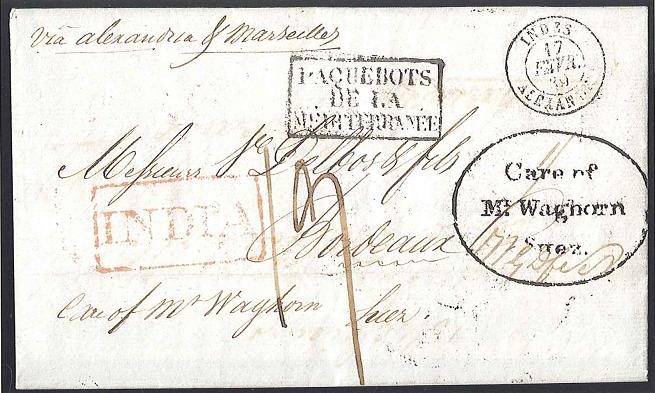 via alexandria & Marseilles
INDES
17
FEVR.
ALEXANDRIE
PAQUEBOTS
DE LA
MEDITERRANEE
Messieurs & fils
Care of
Mr. Waghorn
Suez.
INDIA
Bordeaux
Care of Mr Waghorn Suez.